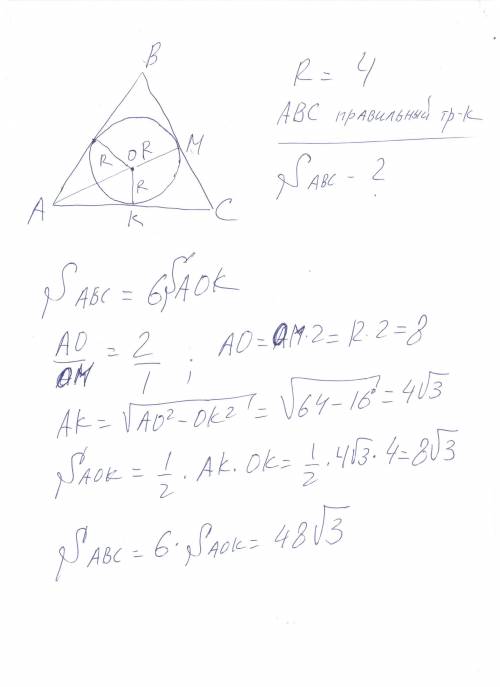 B
R = 4
ABC правильный тр-к
S ABC - ?
R
O
R
M
R
A
K
C
S ABC = 6 S AOK
AO/OM = 2/1 ; AO = OM · 2 = R · 2 = 8
AK = √(AO² - OK²) = √(64 - 16) = 4√3
S AOK = 1/2 · AK · OK = 1/2 · 4√3 · 4 = 8√3
S ABC = 6 · S AOK = 48√3